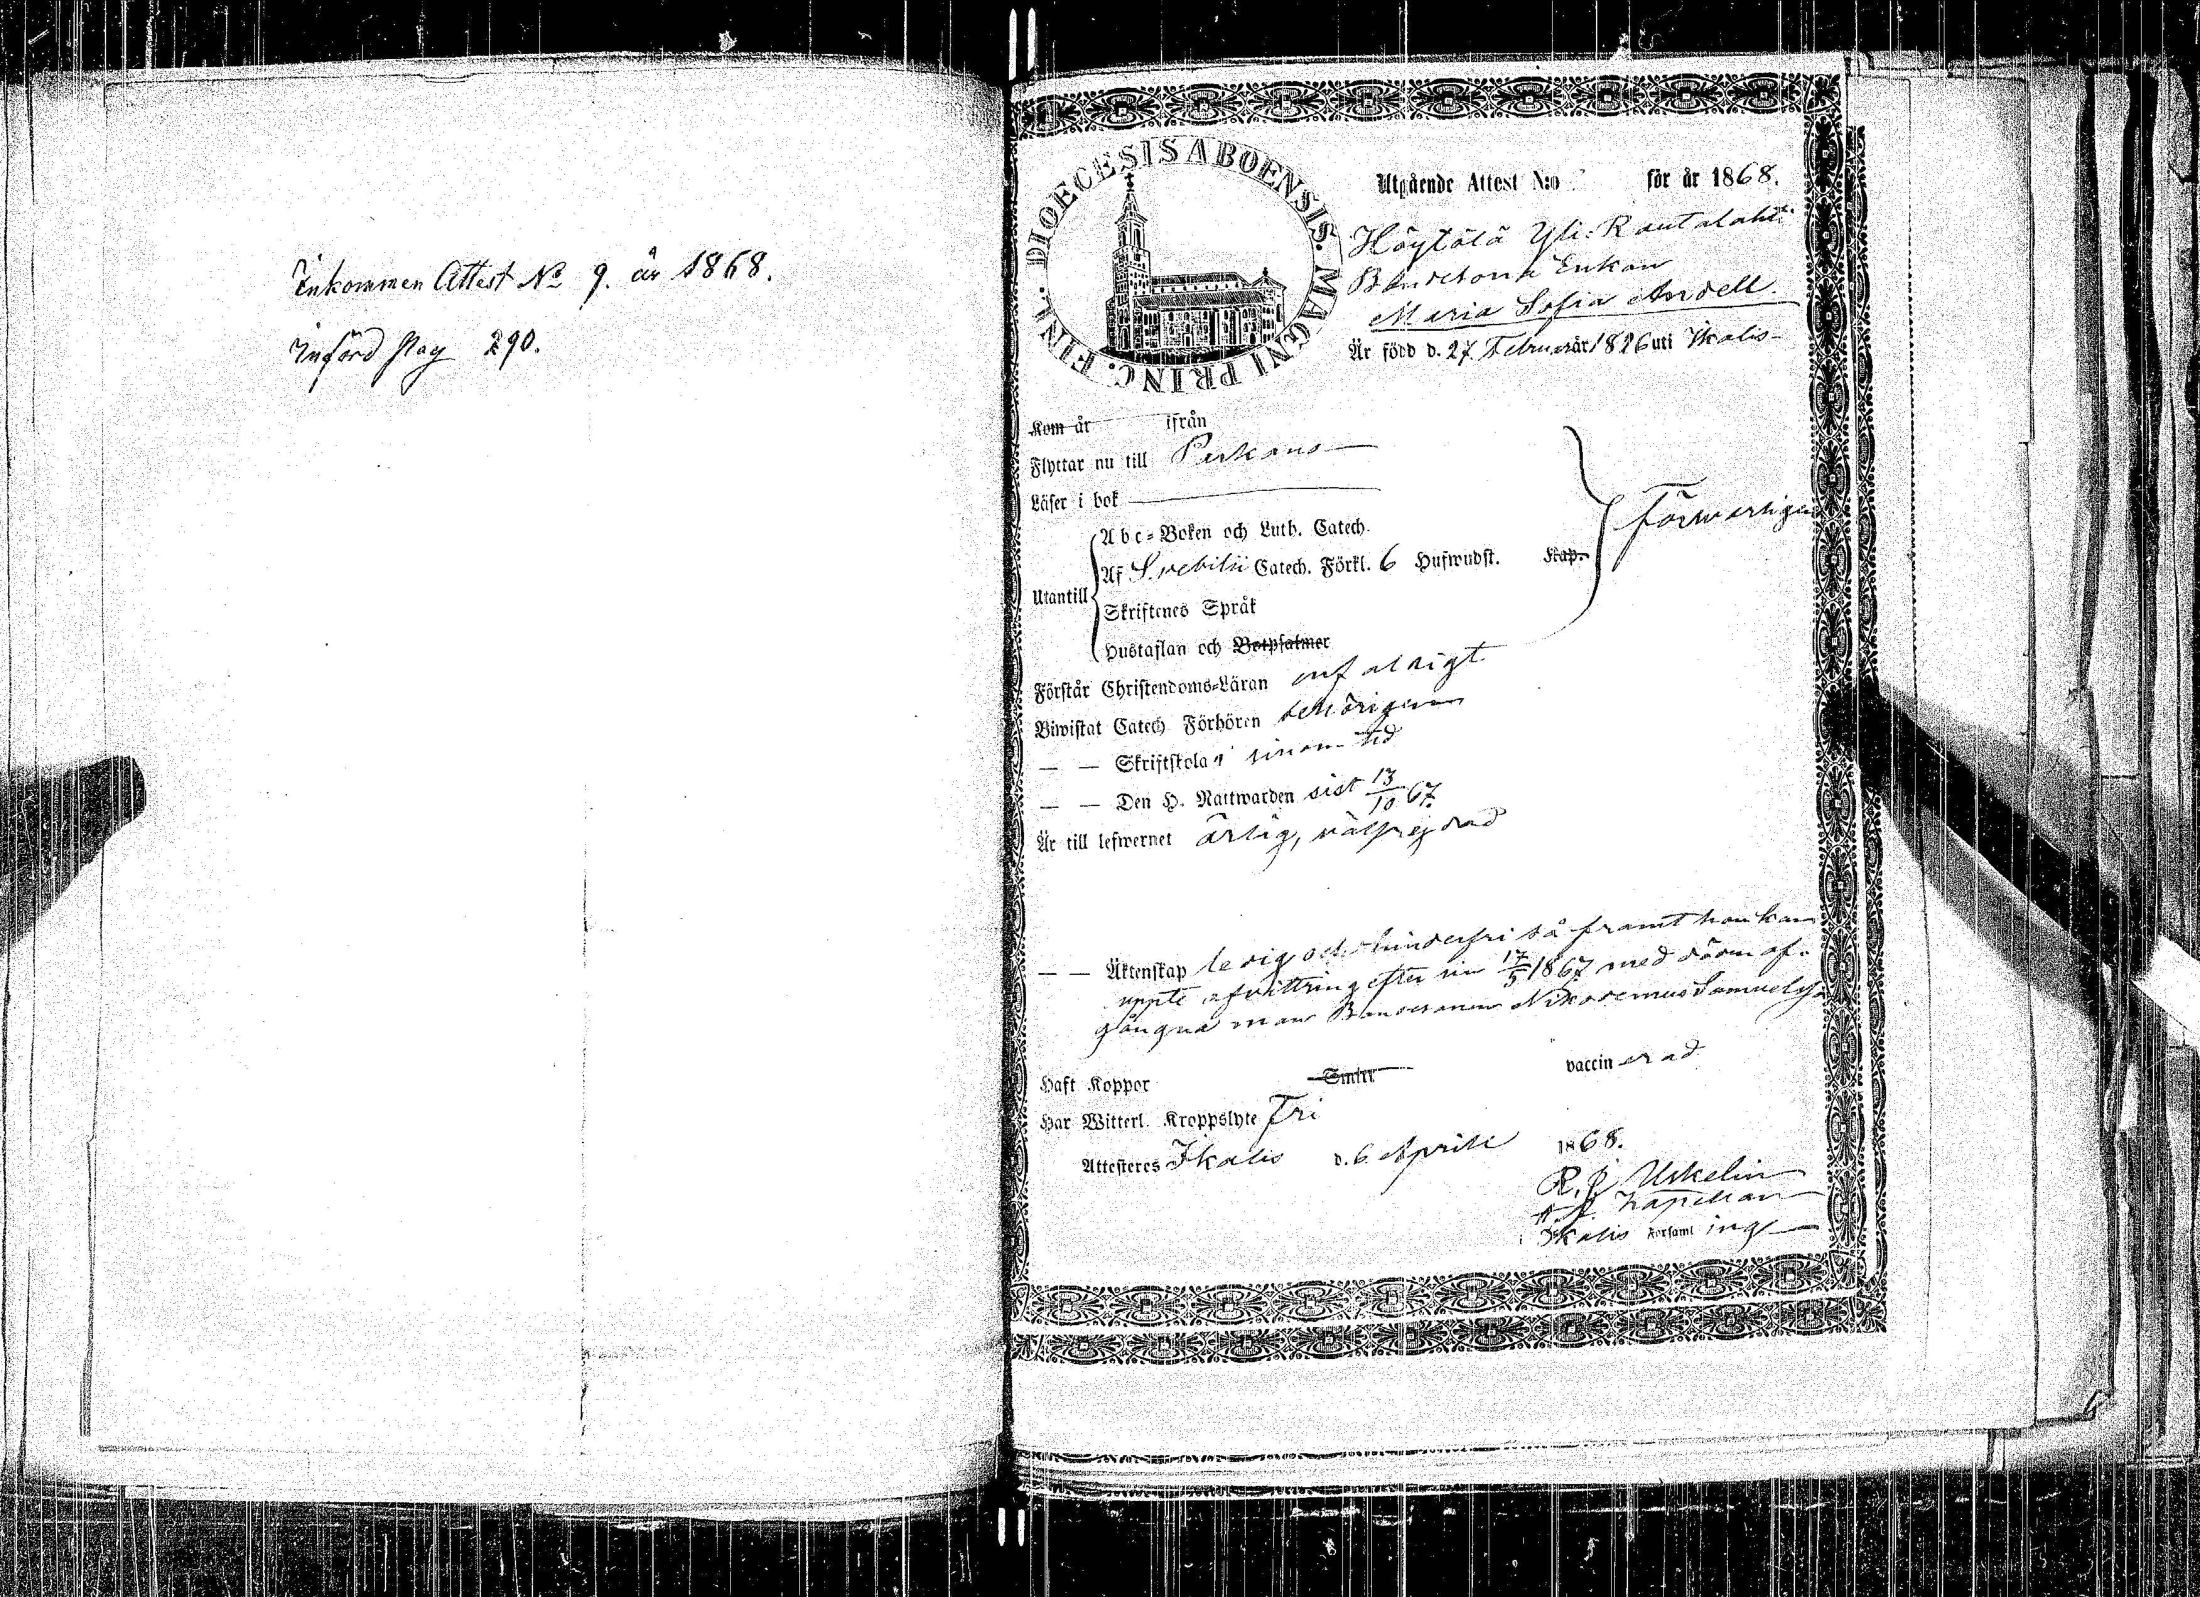 Inkommen Attest No 9. år 1868.
Införd Pag 290.
DIOECESIS ABOENSIS. MAGNI PRINC. FINL.
Utgående Attest N:o för år 1868.
Höytölä Yli-Rautalahti
Bondesona Enkan
Maria Sofia Andell
Är född d. 27 Februari år 1826 uti Ikalis
Kom år ifrån
Flyttar nu till Parkano
Läser i bok
Abc-Boken och Luth. Catech.
Af Svebilii Catech. Förkl. 6 Hufwudst. Kap.
Försvarligen
Utantill
Skriftenes Språk
Hustaflan och Botpsalmer
Förstår Christendoms-Läran enfaldigt
Biwistat Catech Förhören behörigen
— — Skriftskola i sinom tid
— — Den H. Nattwarden sist 13/10 67.
Är till lefwernet ärlig, välfrejdad
— — Äktenskap ledig och hinderfri så framt hon kan
uppte afvittring efter sin 17/5 1867 med döden af-
gångna man Bondesonen Nikodemus Samuelss
Haft Koppor Smitt vaccinerad
Har Witterl. Kroppslyte Fri
Attesteras Ikalis d. 6 Aprili 1868.
R. J. Uskelin
Kapellan
i Ikalis Församling